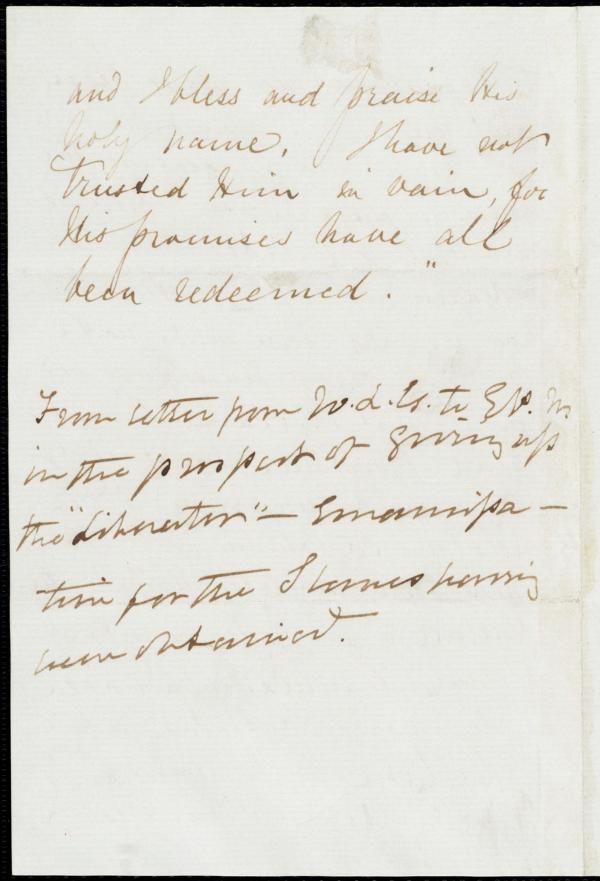 and I bless and praise His
holy name. I have not
trusted Him in vain, for
His promises have all
been redeemed."
From letter from W. L. G. to
in the prospect of giving up
the "Liberator" — Emancipa –
tion for the Slaves having
been obtained.